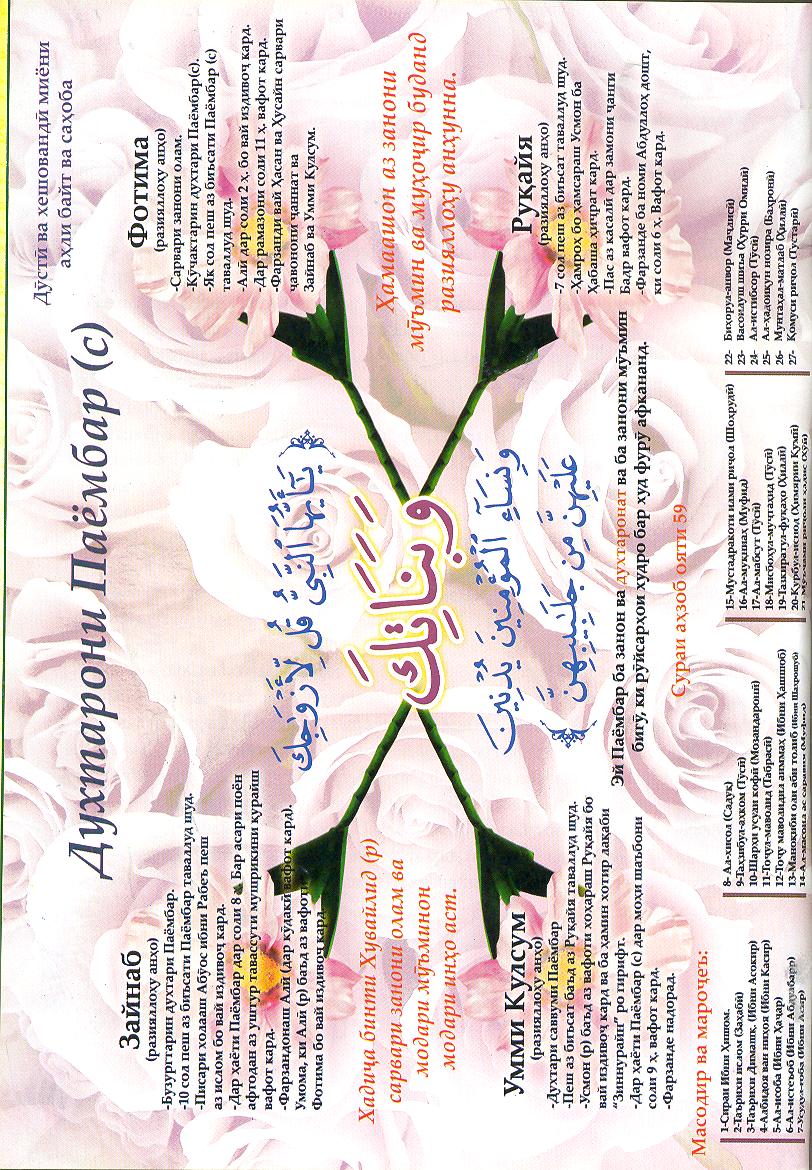 Духтарони Паёмбар (с)
Дӯстӣ ва хешовандӣ миёни
аҳли байт ва саҳоба
Зайнаб
(разияллоҳу анҳо)
-Бузурггарин духтари Паёмбар.
-10 сол пеш аз биъсати Паёмбар таваллуд шуд.
-Писари холааш Абӯос ибни Рабеъ пеш
аз ислом бо вай издивоҷ кард.
-Дар ҳаёти Паёмбар дар соли 8 ҳ. Бар асари поён
афтодан аз уштур тавассути мушрикини қурайш
вафот кард.
-Фарзандонаш Алӣ (дар кӯдакӣ вафот кард).
Умома, ки Алӣ (р) баъд аз вафоти
Фотима бо вай издивоҷ кард.
Фотима
(разияллоҳу анҳо)
-Сарвари занони олам.
-Кӯчактарин духтари Паёмбар(с).
-Як сол пеш аз биъсати Паёмбар (с)
таваллуд шуд.
-Алӣ дар соли 2 ҳ, бо вай издивоҷ кард.
-Дар рамазони соли 11 ҳ, вафот кард.
-Фарзанди вай Ҳасан ва Ҳусайн сарвари
ҷавонони ҷаннат ва
Зайнаб ва Умми Кулсум.
يَٰٓأَيُّهَا ٱلنَّبِىُّ قُل لِّأَزْوَٰجِكَ
وَبَنَاتِكَ
وَنِسَآءِ ٱلْمُؤْمِنِينَ يُدْنِينَ
عَلَيْهِنَّ مِن جَلَٰبِيبِهِنَّ
Хадиҷа бинти Хувайлид (р)
сарвари занони олам ва
модари мӯъминон
модари инҳо аст.
Ҳамаашон аз занони
мӯъмин ва муҳоҷир буданд
разияллоҳу анҳунна.
Умми Кулсум
(разияллоҳу анҳо)
-Духтари саввуми Паёмбар
-Пеш аз биъсат баъд аз Руқайя таваллуд шуд.
-Усмон (р) баъд аз вафоти хоҳараш Руқайя бо
вай издивоҷ кард ва ба ҳамин хотир лақаби
"Зиннурайн" ро гирифт.
-Дар ҳаёти Паёмбар (с) дар моҳи шаъбони
соли 9 ҳ, вафот кард.
-Фарзанде надорад.
Руқайя
(разияллоҳу анҳо)
-7 сол пеш аз биъсат таваллуд шуд.
-Ҳамроҳ бо ҳамсараш Усмон ба
Ҳабаша ҳиҷрат кард.
-Пас аз касалӣ дар замони ҷанги
Бадр вафот кард.
-Фарзанде ба номи Абдуллоҳ дошт,
ки соли 6 ҳ. Вафот кард.
Эй Паёмбар ба занон ва духтаронат ва ба занони мӯъмин
бигӯ, ки рӯйсарҳои худро бар худ фурӯ афкананд.
Сураи аҳзоб ояти 59
Масодир ва мароҷеъ:
1-Сираи Ибни Ҳишом.
2-Таърихи ислом (Заҳабӣ)
3-Таърихи Димашқ, (Ибни Асокир)
4-Албидоя ван ниҳоя (Ибни Касир)
5-Ал-исоба (Ибни Ҳаҷар)
6-Ал-истеъоб (Ибни Абдулбарр)
8- Ал-хисол (Садуқ)
9-Таҳзибул-аҳком (Тӯсӣ)
10-Шарҳи усули кофӣ (Мозандаронӣ)
11-Тоҷул-маволид (Табрасӣ)
12-Тоҷу маволидил аиммаҳ (Ибни Хашшоб)
13-Маноқиби оли аби толиб (Ибни Шаҳрошуб)
15-Мустадракоти илми риҷол (Шоҳрудӣ)
16-Ал-муқниаҳ (Муфид)
17-Ал-мабсут (Тӯсӣ)
18-Мисбоҳул-мутаҳаҷҷид (Тӯсӣ)
19-Тазкиратул-фуқаҳо (Ҳиллӣ)
20-Қурбул-иснод (Ҳимярии Қумӣ)
22- Биҳорул-анвор (Маҷлисӣ)
23- Васоилуш шиъа (Ҳурри Омилӣ)
24- Ал-истибсор (Тӯсӣ)
25- Ал-ҳадоиқун нозира (Баҳронӣ)
26- Мунтаҳал-матлаб (Ҳиллӣ)
27- Қомуси риҷол (Тустарӣ)